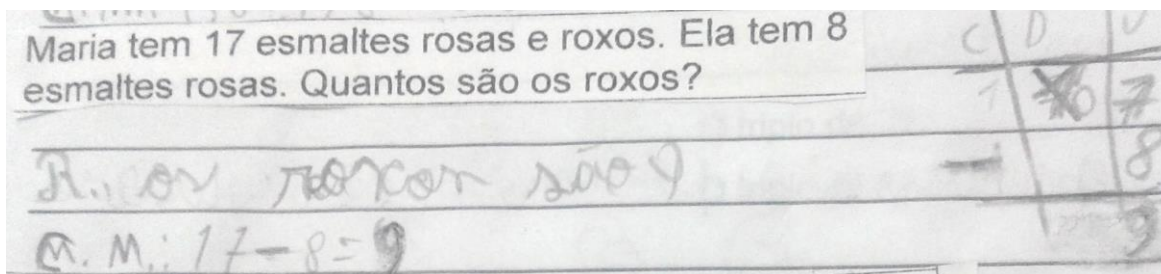 Maria tem 17 esmaltes rosas e roxos. Ela tem 8
esmaltes rosas. Quantos são os roxos?
C D U
1 0 7
R.: os roxos são 9
- 8
C.M.: 17-8=9
9